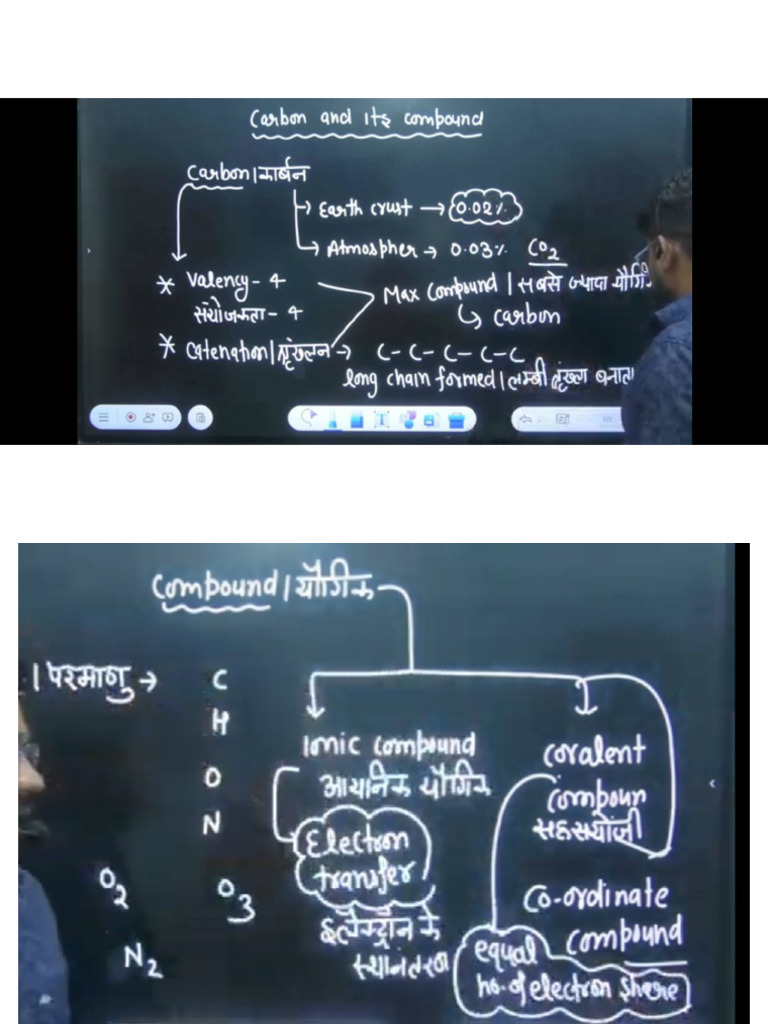 Carbon and its compound
Carbon | कार्बन
→ Earth crust → 0.02%
→ Atmospher → 0.03% CO2
* Valency - 4
संयोजकता - 4
Max Compound | सबसे ज्यादा
↳ Carbon
* Catenation | शृंखलन → C-C-C-C-C
long chain formed | लम्बी बनाता
Compound | यौगिक
| परमाणु → C
H
O
N
O2 O3
N2
Ionic compound
आयनिक यौगिक
Electron
transfer
इलेक्ट्रॉन के
Covalent
Compoun
Co-ordinate
compound
equal
no. of electron share